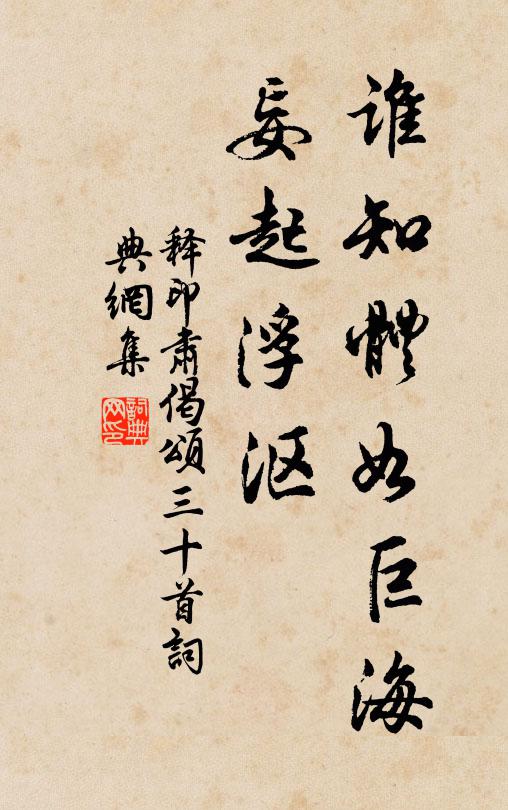 誰知體如巨海
妄起浮沤
释印肅偈頌三十首詞
典網集
詞典
网印